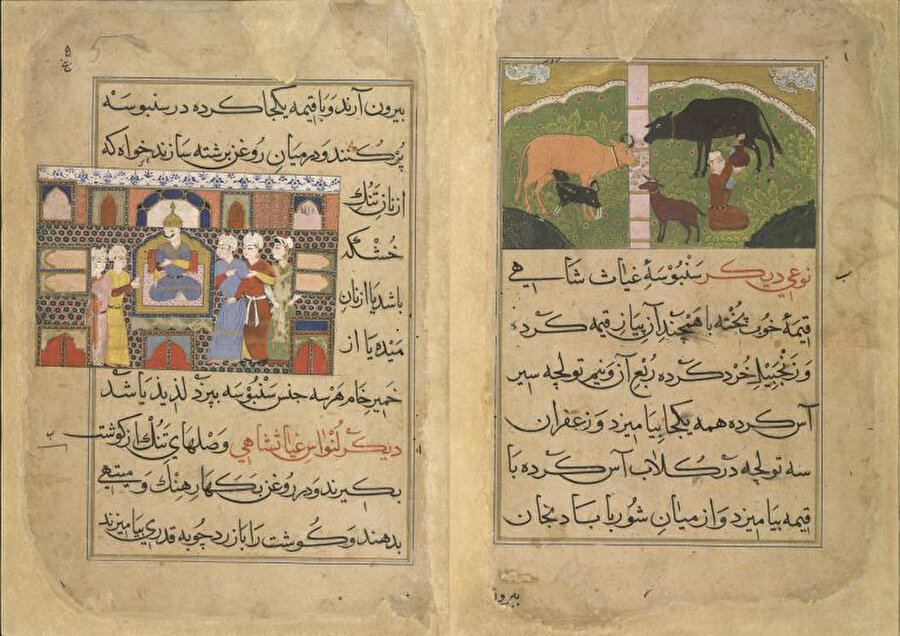 نوعی دیگر سنبوسهٔ غیاث شاهی
قیمهٔ خوب پخته با همچند آن پیاز قیمه کرده
و زنجبیل خرد کرده ربع آن و نیم تولچه سیر
آس کرده همه یکجا بیامیزد و زعفران
سه تولچه در گلاب آس کرده با
قیمه بیامیزد و از میان شوربا بادنجان
بیرو
بیرون آرند و با قیمه یکجا کرده در سنبوسه
پر کنند و در میان روغن برشته سازند خواه که
از نان تنک
خشکه
باشد یا از نان
میده یا از
خمیر خام هر سه جنس سنبوسه بپزد لذیذ باشد
دیگر لنواس غیاثشاهی وصلهای تنک از گوشت
بگیرند و در روغن بگهار هنگ و میتهی
بدهند و گوشت را با زردچوبه قدری بیامیزند